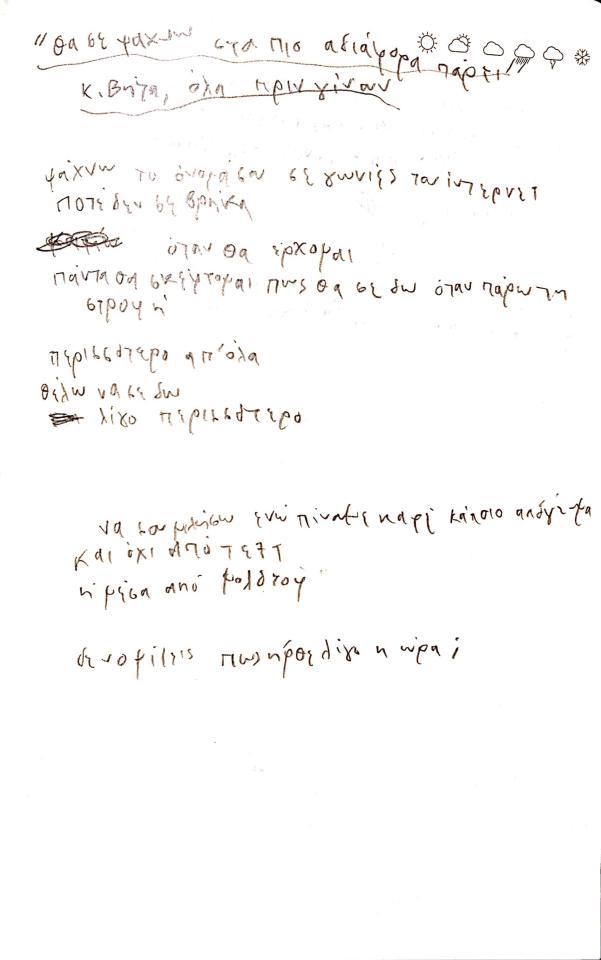 "θα σε ψάχνω στα πιο αδιάφορα πάρτι"
Κ.Βήτα, όλα πριν γίνουν
ψάχνω το όνομά σου σε γωνιές του ίντερνετ
ποτέ δεν σε βρήκα
όταν θα έρχομαι
πάντα θα σκέφτομαι πως θα σε δω όταν πάρω τη
στροφή
περισσότερο απ'όλα
θέλω να σε δω
λίγο περισσότερο
να σου μιλήσω ενώ πίναμε καφέ κάποιο απόγεμα
και όχι από τεξτ
ή μέσα από
δε νομίζεις πως ήρθε λίγο η ώρα;